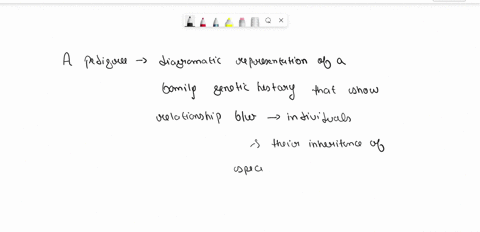 A pedigree → diagramatic representation of a
family genetic history that show
relationship b/w → individuals
↳ their inheritance of
spec